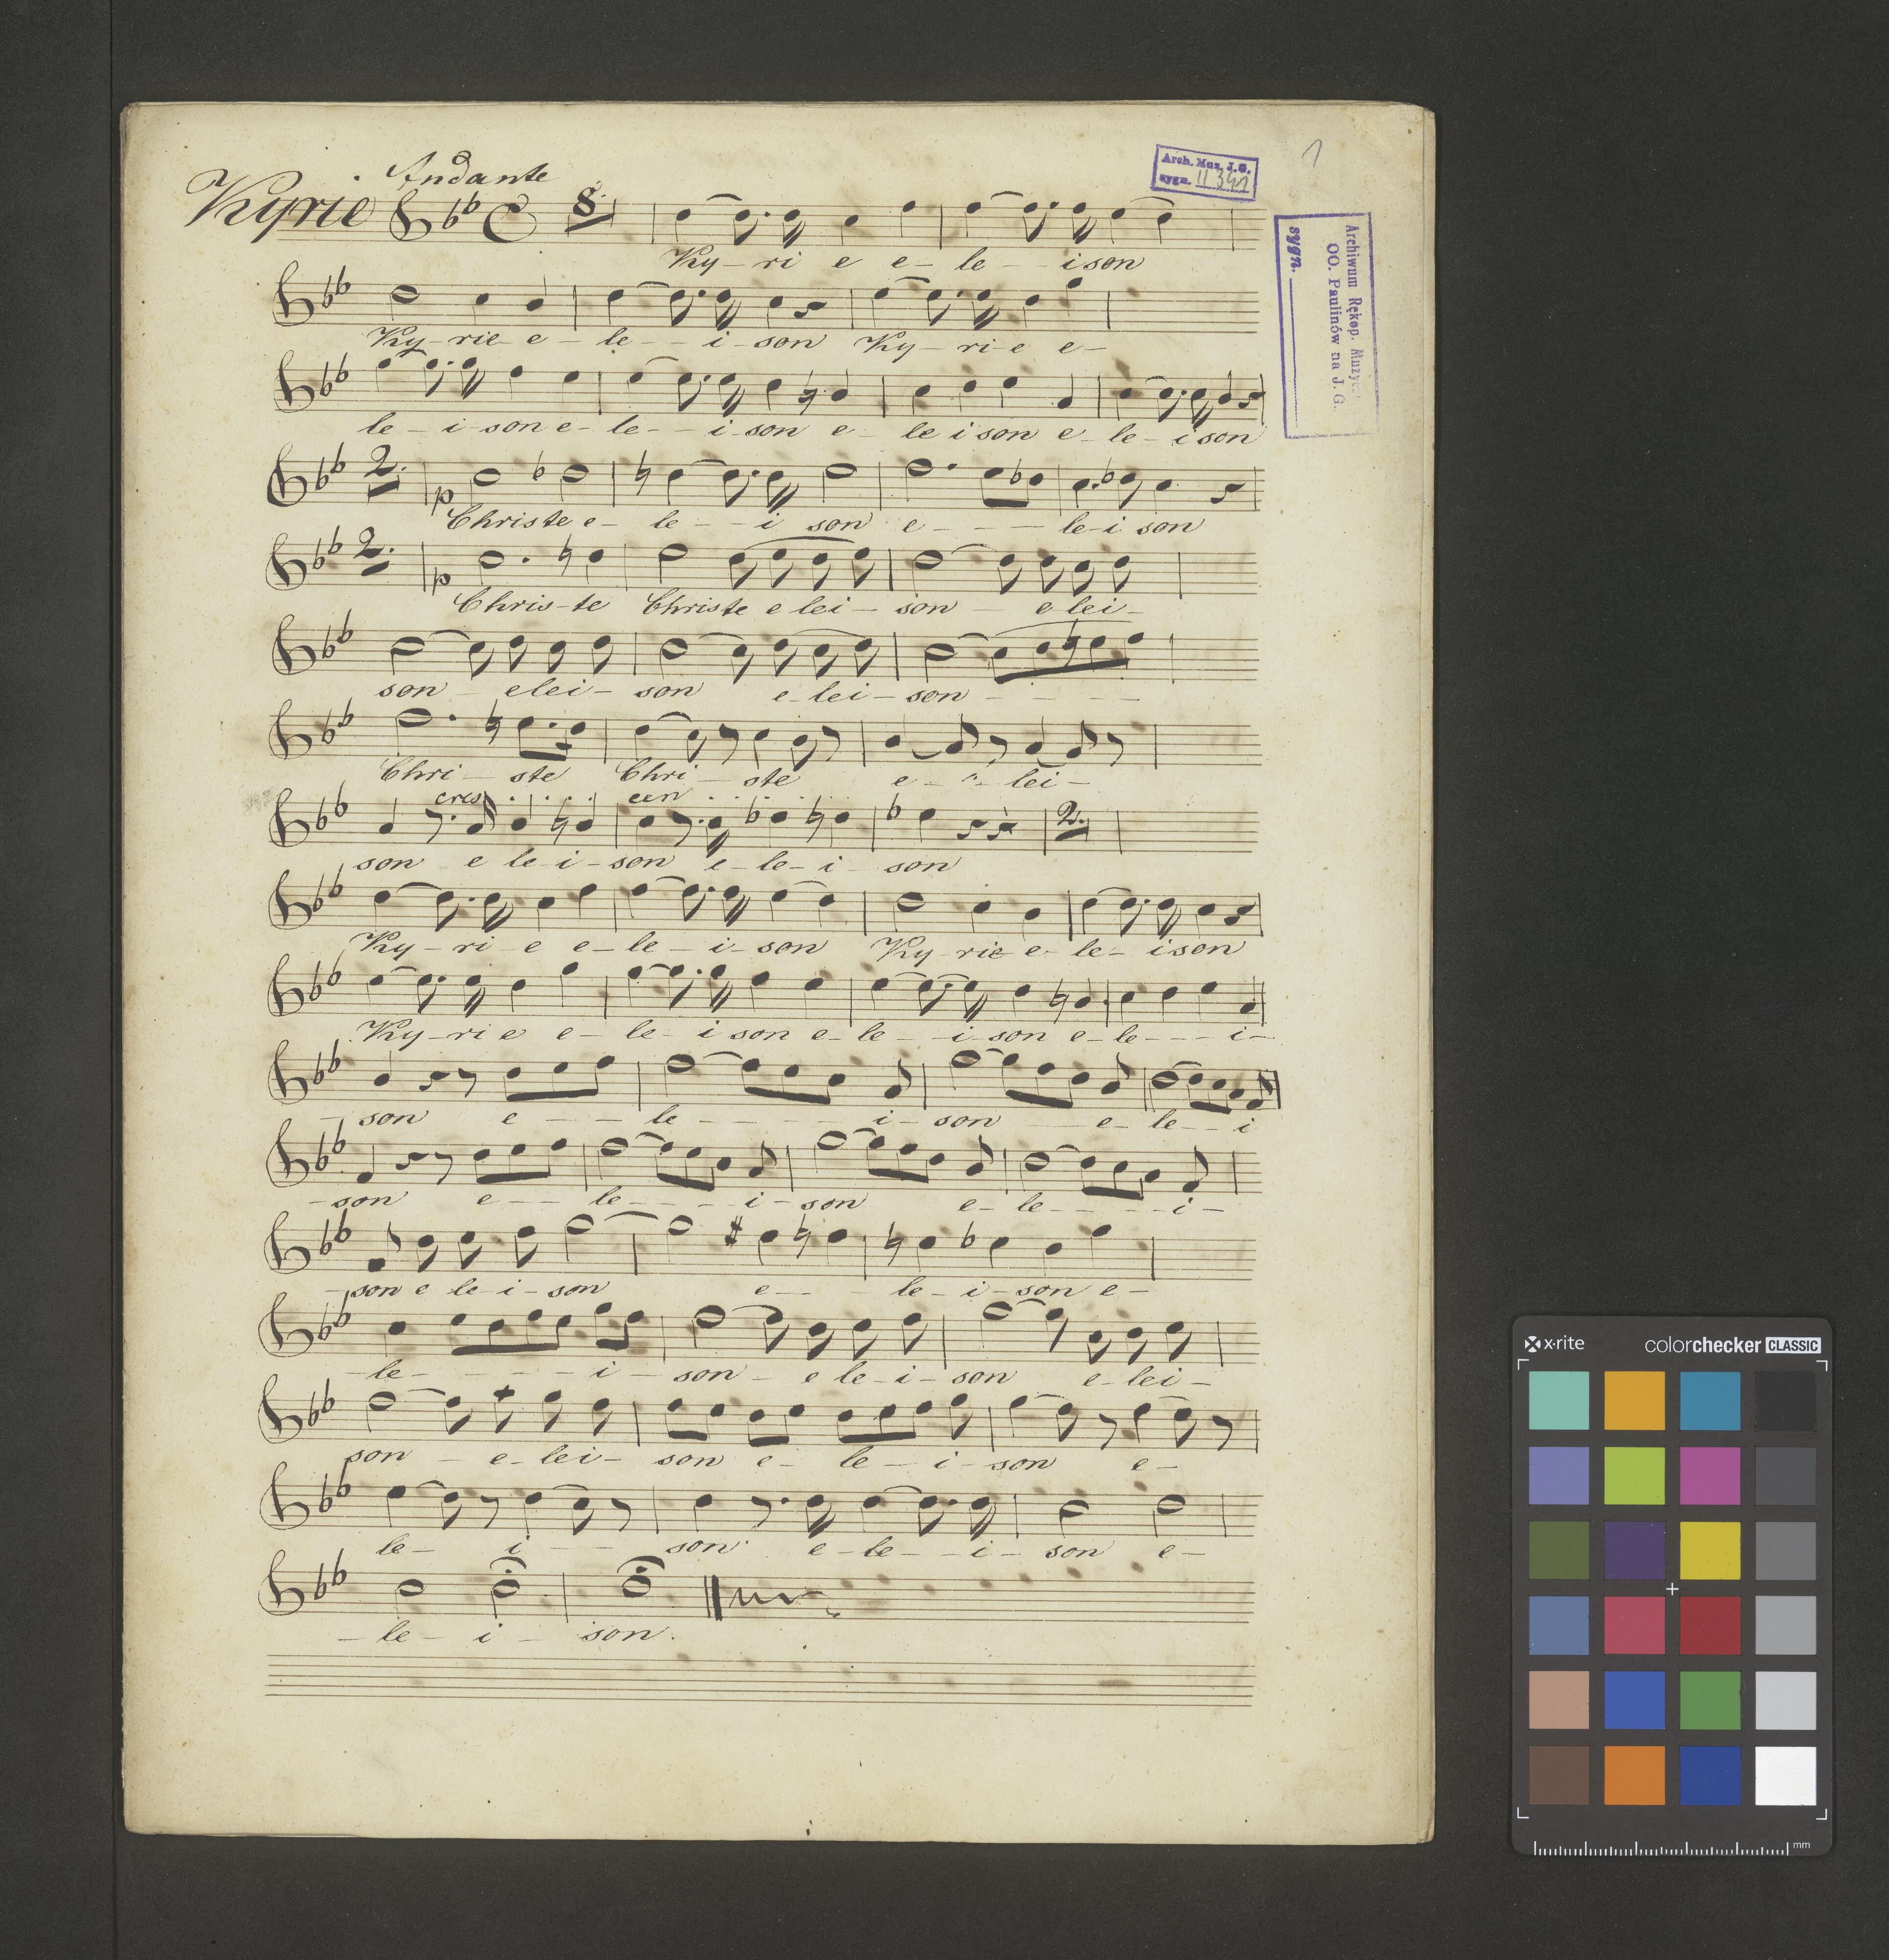 Andante
Kyrie 8.
Arch. Muz. J.G.
sygn. II 341
1
Archiwum Rękop. Muzycz
OO. Paulinów na J. G.
sygn.
Ky - ri e e - le - - i son
Ky - rie e - le - - i - son Ky - ri - e e -
le - i - son e - le - - i - son e - le i son e - le - i son
2.
p
Christe e - le - - i son e - - - le - i son
2.
p
Chris - te Christe e lei - son - e lei -
son - e lei - son e - lei - son - - - -
Chri - ste Chri - ste e - - - lei -
cres . . . . cen . . . .
2.
son e le - i - son e - le - i son
Ky - ri - e e - le - i - son Ky - rie e - le - i son
Ky - ri e e - le - i son e - le - - i - son e - le - - - i -
- son e - - - le - - - - - i - son - e - le - - i
- son e - - - le - - - - i - son e - le - - - - i -
- son e le - i - son e - - - le - i - son e -
- le - - - - - i - son - e le - i - son e - lei -
son - e - lei - son e - le - i - son e -
le - i - - son. e - le - - i - son e -
- le - i - son.
x-rite colorchecker CLASSIC
mm